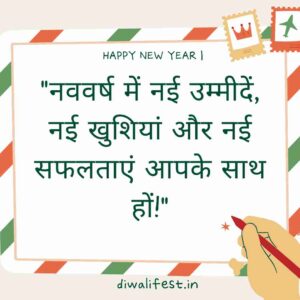 HAPPY NEW YEAR |
"नववर्ष में नई उम्मीदें,
नई खुशियां और नई
सफलताएं आपके साथ
हों!"
diwalifest.in